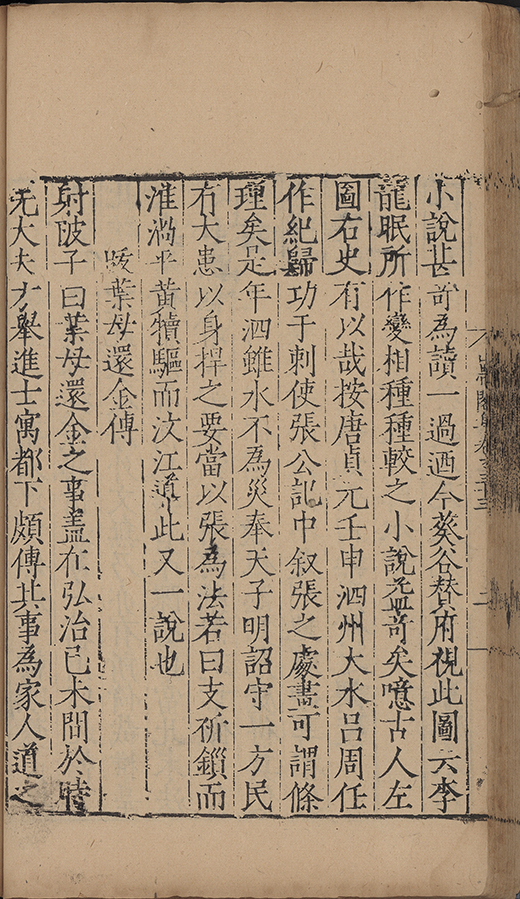 小說甚奇為讀一過迺今葵谷贊府視此圖云李
龍眠所作變相種種較之小說益奇矣噫古人左
圖右史有以哉按唐貞元壬申泗州大水呂周任
作紀歸功于刺使張公記中叙張之處畫可謂條
理矣是年泗雖水不為災奉天子明詔守一方民
有大患以身捍之要當以張為法若曰支祈鎖而
淮渦平黃犢驅而汶江道此又一說也
跋葉母還金傳
射陂子曰葉母還金之事盖在弘治己未間於時
先大夫才舉進士寓都下頗傳其事為家人道之